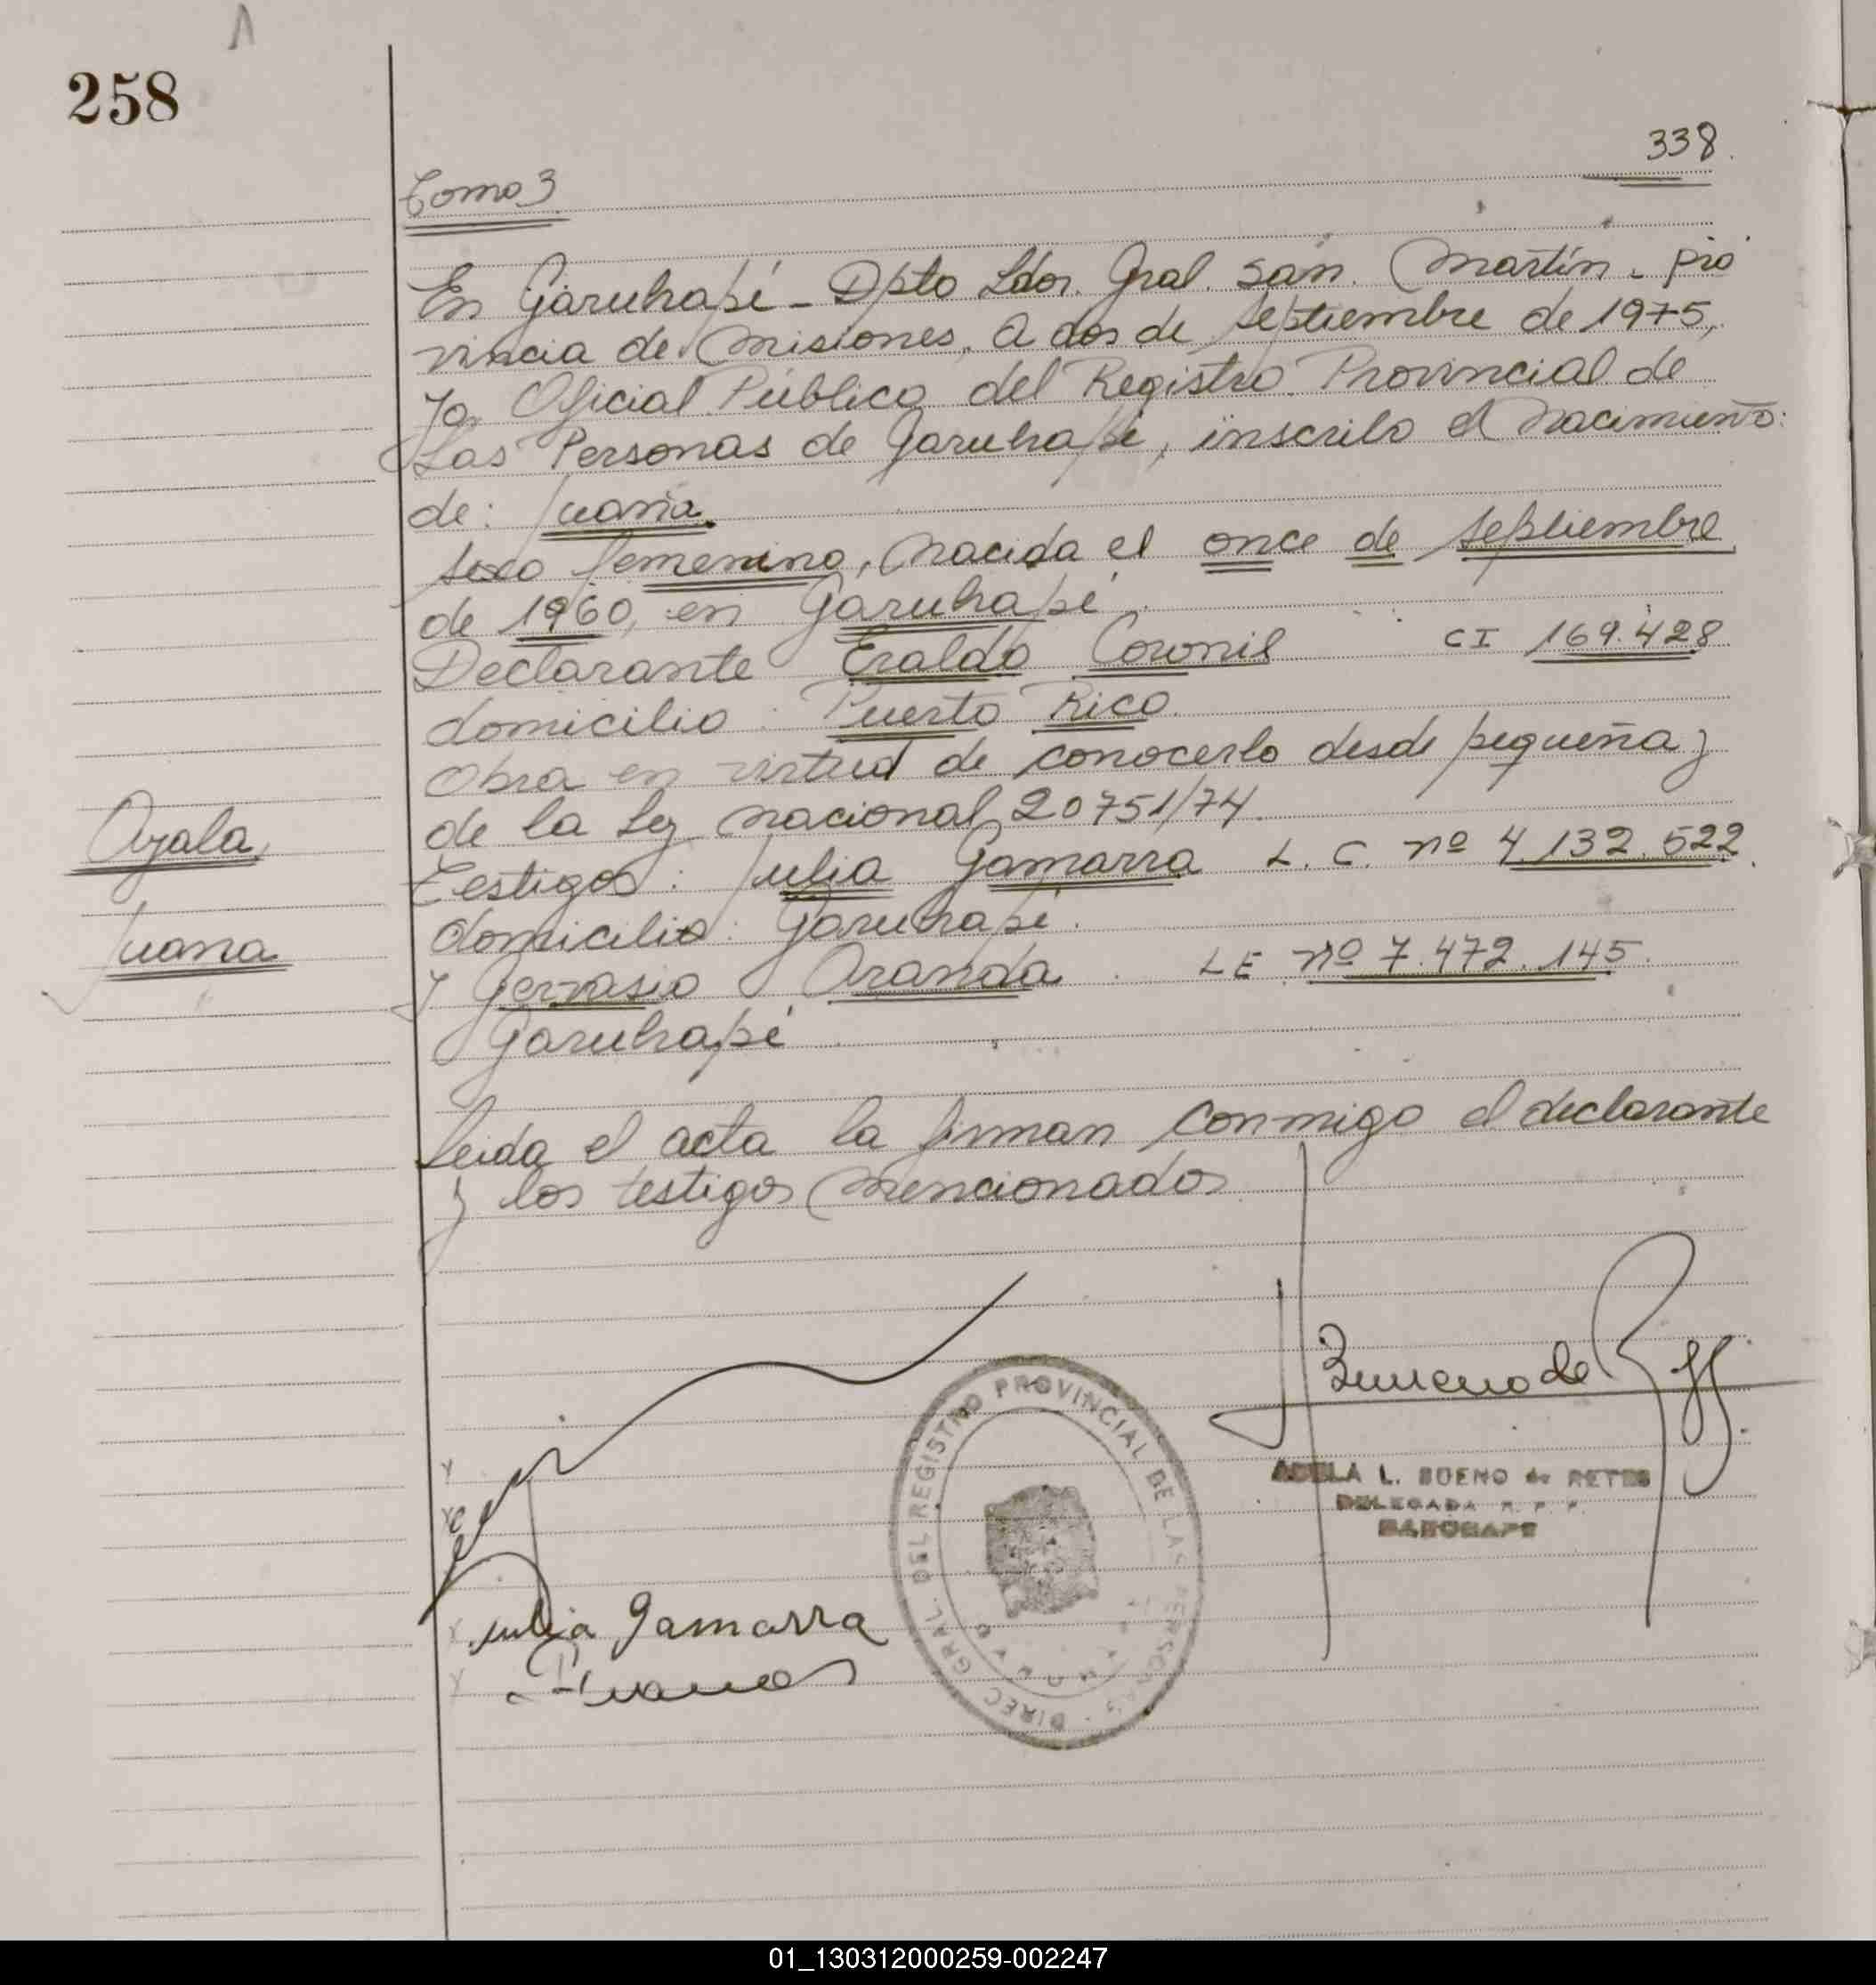 258
338.
Tomo 3
En Garuhapé - Dpto Ldor. Gral. San. Martín - pro
vincia de Misiones, a dos de septiembre de 1975,
yo Oficial Público del Registro Provincial de
Las Personas de Garuhapé, inscribo el nacimiento:
de: Juana
sexo femenino, nacida el once de septiembre
de 1960, en Garuhapé.
Declarante Eraldo Coronil CI 169.428
domicilio: Puerto Rico.
Obra en virtud de conocerlo desde pequeña y
de la Ley nacional 20751/74.
Testigos: Julia Gamarra L. C. nº 4.132.522.
domicilio: Garuhapé.
y Gervasio Aranda. LE nº 7.472.145.
Garuhapé.
Ayala,
Juana
Leida el acta la firman conmigo el declarante
y los testigos mencionados
Julia Gamarra
DIREC. GRAL. DEL REGISTRO PROVINCIAL DE LAS PERSONAS
ADELA L. BUENO de RETES
DELEGADA R. P. P.
GARUHAPE
01_130312000259-002247